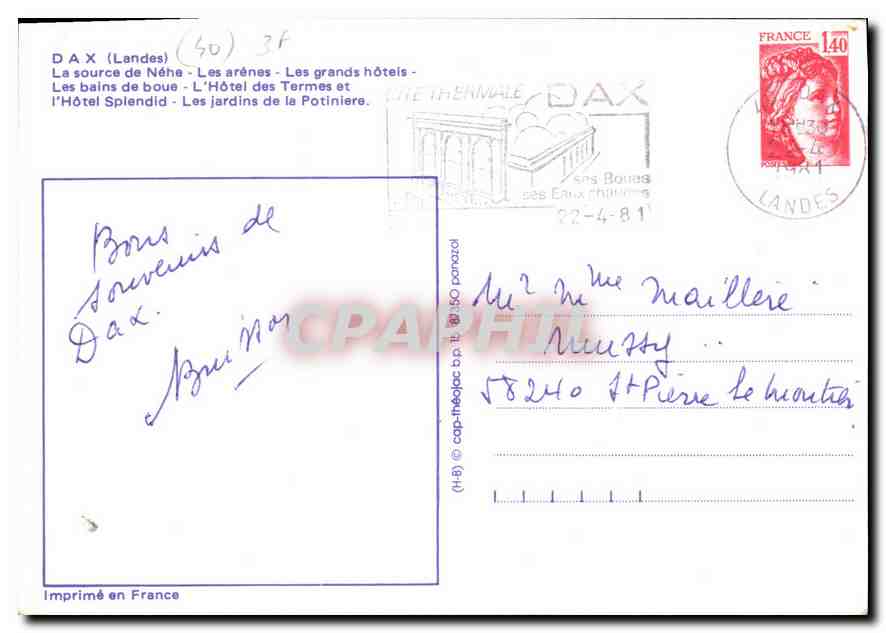 DAX (Landes) (40) 3F
La source de Néhe - Les arènes - Les grands hôtels -
Les bains de boue - L'Hôtel des Termes et
l'Hôtel Splendid - Les jardins de la Potiniere.
FRANCE 1,40
CITE THERMALE DAX
ses Boues
ses Eaux chaudes
22-4-81
1981
LANDES
Bons
souvenirs de
Dax.
Mr Mme Maillère
58240 St Pierre le Moutier
CPAPHIL
(H-8) © cap-théojac b.p. 15 87350 panazol
Imprimé en France